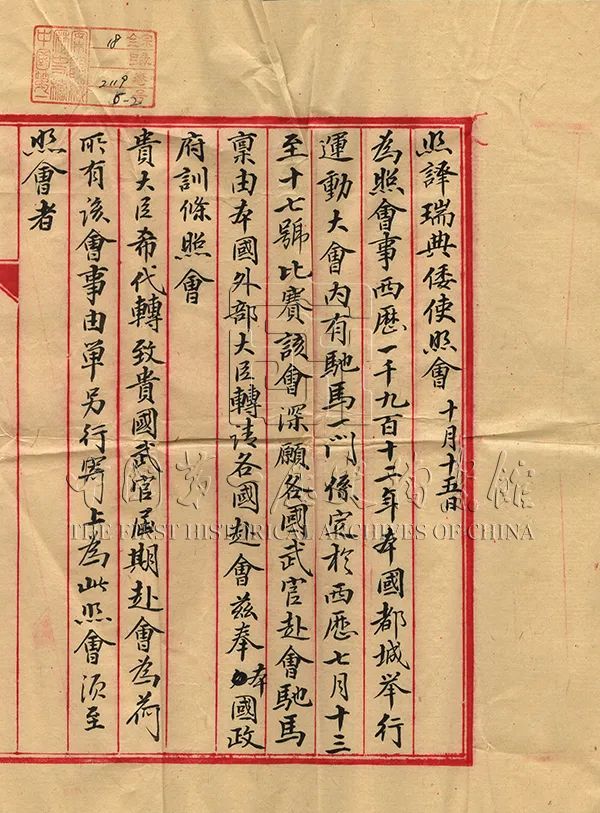 照譯瑞典倭使照會 十月十五日
為照會事西歷一千九百十二年本國都城举行
運動大會内有馳馬一門係定於西歷七月十三
至十七號比賽該會深願各國武官赴會馳馬
禀由本國外部大臣轉請各國赴會兹奉本國政
府訓條照會
貴大臣希代轉致貴國武官屆期赴會為荷
所有該會事由單另行寄上為此照會須至
照會者
18
2119
5-2
中國第一歷史檔案館
THE FIRST HISTORICAL ARCHIVES OF CHINA